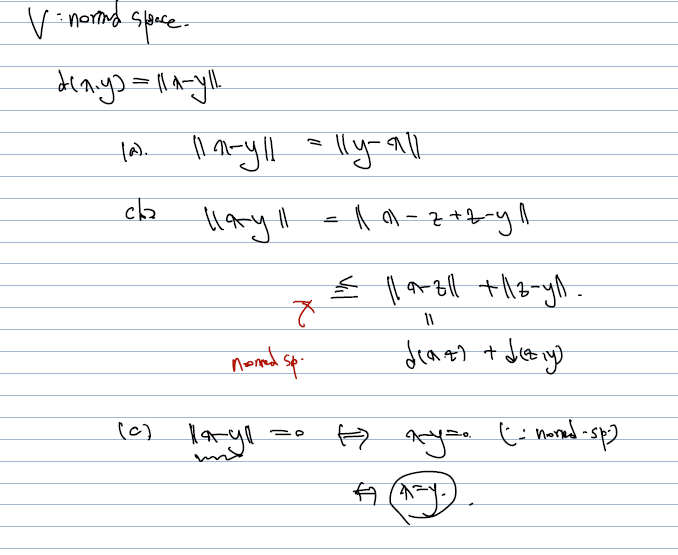 V : normed space.
d(x,y) = ||x-y||.
(a). ||x-y|| = ||y-x||
(b) ||x-y|| = ||x-z+z-y||
≤ ||x-z|| + ||z-y||.
||
normed sp. d(x,z) + d(z,y)
(c) ||x-y|| = 0 ⟺ x-y=0. (∵ normed-sp.)
⟺ x=y.